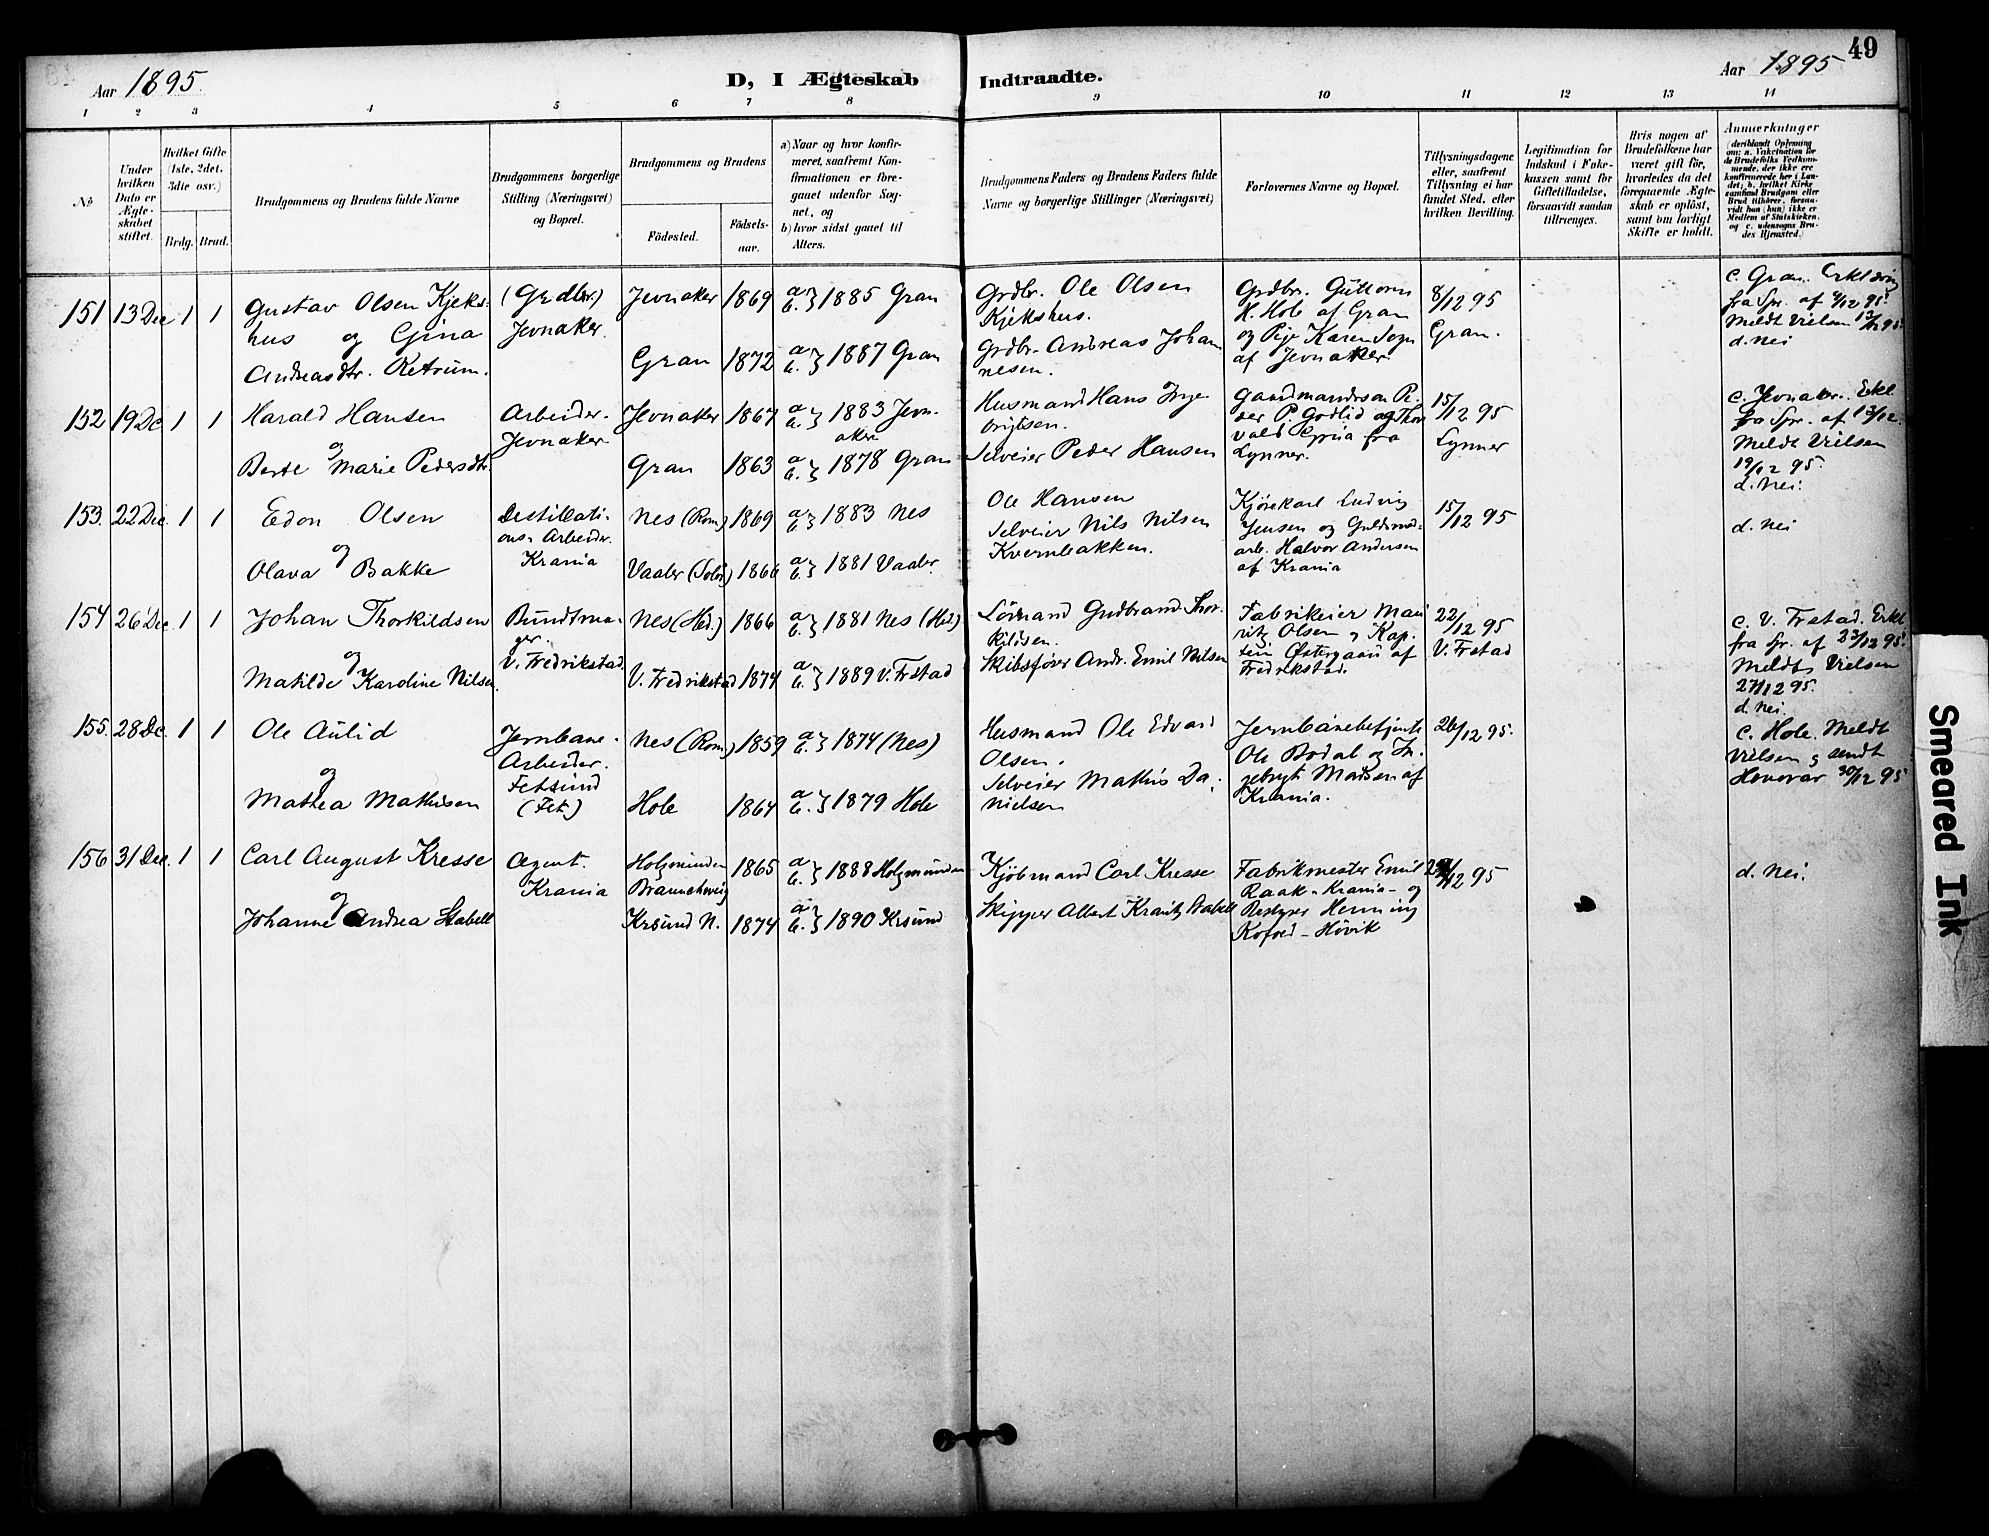 49
Aar 1895. D, I Ægteskab Indtraadte. Aar 1895
1 2 3 4 5 6 7 8 9 10 11 12 13 14
No
Under hvilken Dato er Ægteskabet stiftet.
Hvilket Gifte (1ste, 2det, 3die osv.)
Brdg. Brud.
Brudgommens og Brudens fulde Navne
Brudgommens borgerlige Stilling (Næringsvei) og Bopæl.
Brudgommens og Brudens
Födested.
Födselsaar.
a) Naar og hvor konfirmeret, saafremt Konfirmationen er foregaaet udenfor Sognet, og
b) hvor sidst gaaet til Alters.
Brudgommens Faders og Brudens Faders fulde Navne og borgerlige Stillinger (Næringsvei)
Forlovernes Navne og Bopæl.
Tillysningsdagene eller, saafremt Tillysning ei har fundet Sted, efter hvilken Bevilling.
Legitimation for Indskud i Enkekassen samt for Giftetilladelse, forsaavidt saadan tiltrænges.
Hvis nogen af Brudefolkene har været gift för, hvorledes da det foregaaende Ægteskab er oplöst, samt om lovligt Skifte er holdt.
Anmerkninger
(deriblandt Oplysning om: a. Vakcination for de Brudefolks Vedkommende, der ikke ere konfirmerede her i Landet; b. hvilket Kirkesamfund Brudgom eller Brud tilhörer, forsaavidt han (hun) ikke er Medlem af Statskirken, og c. udensogns Brudes Hjemsted.)
151 13 Dec 1 1 Gustav Olsen Kjekshus og Gina Andreasdtr. Retrum.
(Grdbr.) Jevnaker.
Jevnaker 1869 a. b. } 1885 Gran
Gran 1872 a. b. } 1887 Gran
Grdbr. Ole Olsen Kjekshus.
Grdbr. Andreas Johannesen.
Grdbr. Guttorm H. Hole af Gran og Pige Karen Sogn af Jevnaker.
8/12 95 Gran.
c. Gran. Erklæring fra Spr. af /12 95. Meldt Vielsen 13/12 95.
d. nei
152 19 Dc 1 1 Harald Hansen og Berte Marie Pedersdtr.
Arbeider. Jevnaker
Jevnaker 1867 a. b. } 1883 Jevnaker
Gran 1863 a. b. } 1878 Gran
Husmand Hans Ingebrigtsen.
Selveier Peder Hansen
Gaardmandssøn Peder P. Godlid og Thorvald Grua fra Lynner.
15/12 95 Lynner
c. Jevnaker. Erkl. fra Spr. af 13/12. Meldt Vielsen 19/12 95.
d. Nei.
153. 22 Dec. 1 1 Edon Olsen og Olava Bakke
Destillations-Arbeider. Krania
Nes (Rom) 1869 a. b. } 1883 Nes
Vaaler (Solør) 1866 a. b. } 1881 Vaaler.
Ole Hansen
Selveier Nils Nilsen Kvernbakken.
Kjørekarl Ludvig Jensen og Guldsmedarb. Halvor Andersen af Krania
15/12 95
d. Nei
154 26 Dec. 1 1 Johan Thorkildsen og Matilde Karoline Nilsen.
Bundtmager. V. Fredrikstad.
Nes (Hed.) 1866 a. b. } 1881 Nes (Hed)
V. Fredrikstad 1874 a. b. } 1889 V. Frstad
Gudbrand Thorkildsen.
Skibsfører Andr. Emil Nilsen
Fabrikeier Mauritz Olsen og Kaptein Østergaard af Fredrikstad.
22/12 95 V. Frstad
c. V. Frstad. Erkl fra Spr. af 23/12 95. Meldt Vielsen 27/12 95.
d. nei.
155. 28 Dc. 1 1 Ole Aulid og Mathea Mathisen
Jernbane-Arbeider. Fetsund (Fet)
Nes (Rom) 1859 a. b. } 1874 (Nes)
Hole 1864 a. b. } 1879 Hole
Husmand Ole Edvard Olsen.
Selveier Mathis Danielsen
Jernbanebetjent Ole Bodal og Ingebrigt Madsen af Krania.
26/12 95.
c. Hole. Meldt Vielsen og sendt 30/12 95
156 31 Dec. 1 1 Carl August Kresse og Johanne Andrea Stabell
Agent. Krania
Holzminden Braunschweig 1865 a. b. } 1888 Holzmünden
Krsund N. 1874 a. b. } 1890 Krsund
Kjöbmand Carl Kresse
Skipper Albert Krantz Stabell
Fabrikmester Emil Raak - Krania - og Bestyrer Henning Kofoed - Hövik
/12 95
d. Nei.
Smeared Ink